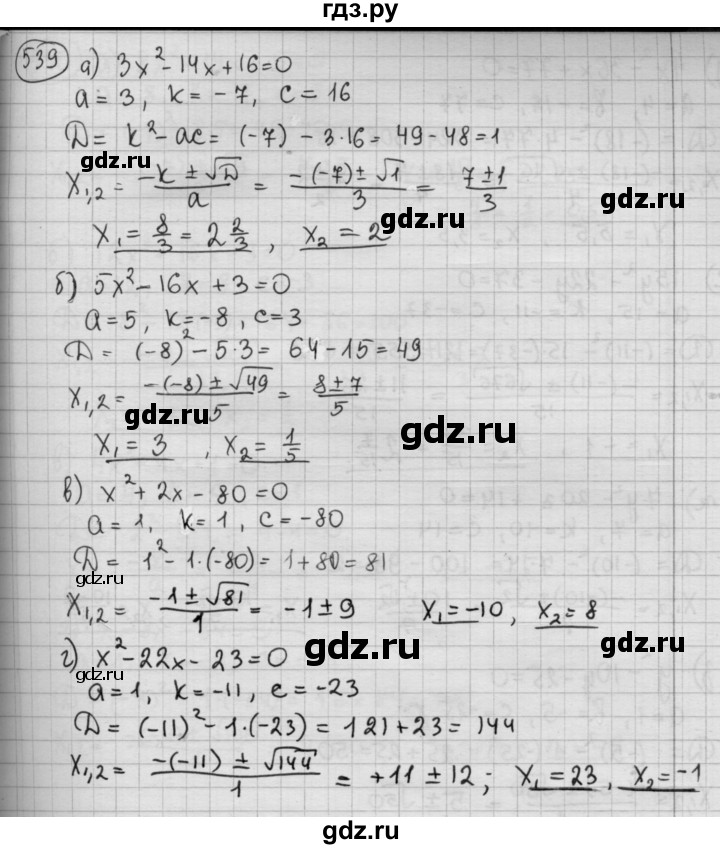 гдз.ру
539 а) 3x² - 14x + 16 = 0
a = 3, k = -7, c = 16
D = k² - ac = (-7) - 3·16 = 49 - 48 = 1
gdz.ru
x₁,₂ = (-k ± √D)/a = (-(-7) ± √1)/3 = (7 ± 1)/3
gdz.ru
gdz.ru
x₁ = 8/3 = 2 2/3, x₂ = 2
б) 5x² - 16x + 3 = 0
a = 5, k = -8, c = 3
D = (-8)² - 5·3 = 64 - 15 = 49
x₁,₂ = (-(-8) ± √49)/5 = (8 ± 7)/5
gdz.ru
gdz.ru
x₁ = 3, x₂ = 1/5
gdz.ru
в) x² + 2x - 80 = 0
a = 1, k = 1, c = -80
D = 1² - 1·(-80) = 1 + 80 = 81
gdz.ru
x₁,₂ = (-1 ± √81)/1 = -1 ± 9 x₁ = -10, x₂ = 8
gdz.ru
gdz.ru
г) x² - 22x - 23 = 0
gdz.ru
a = 1, k = -11, c = -23
D = (-11)² - 1·(-23) = 121 + 23 = 144
gdz.ru
x₁,₂ = (-(-11) ± √144)/1 = +11 ± 12; x₁ = 23, x₂ = -1
gdz.ru
gdz.ru